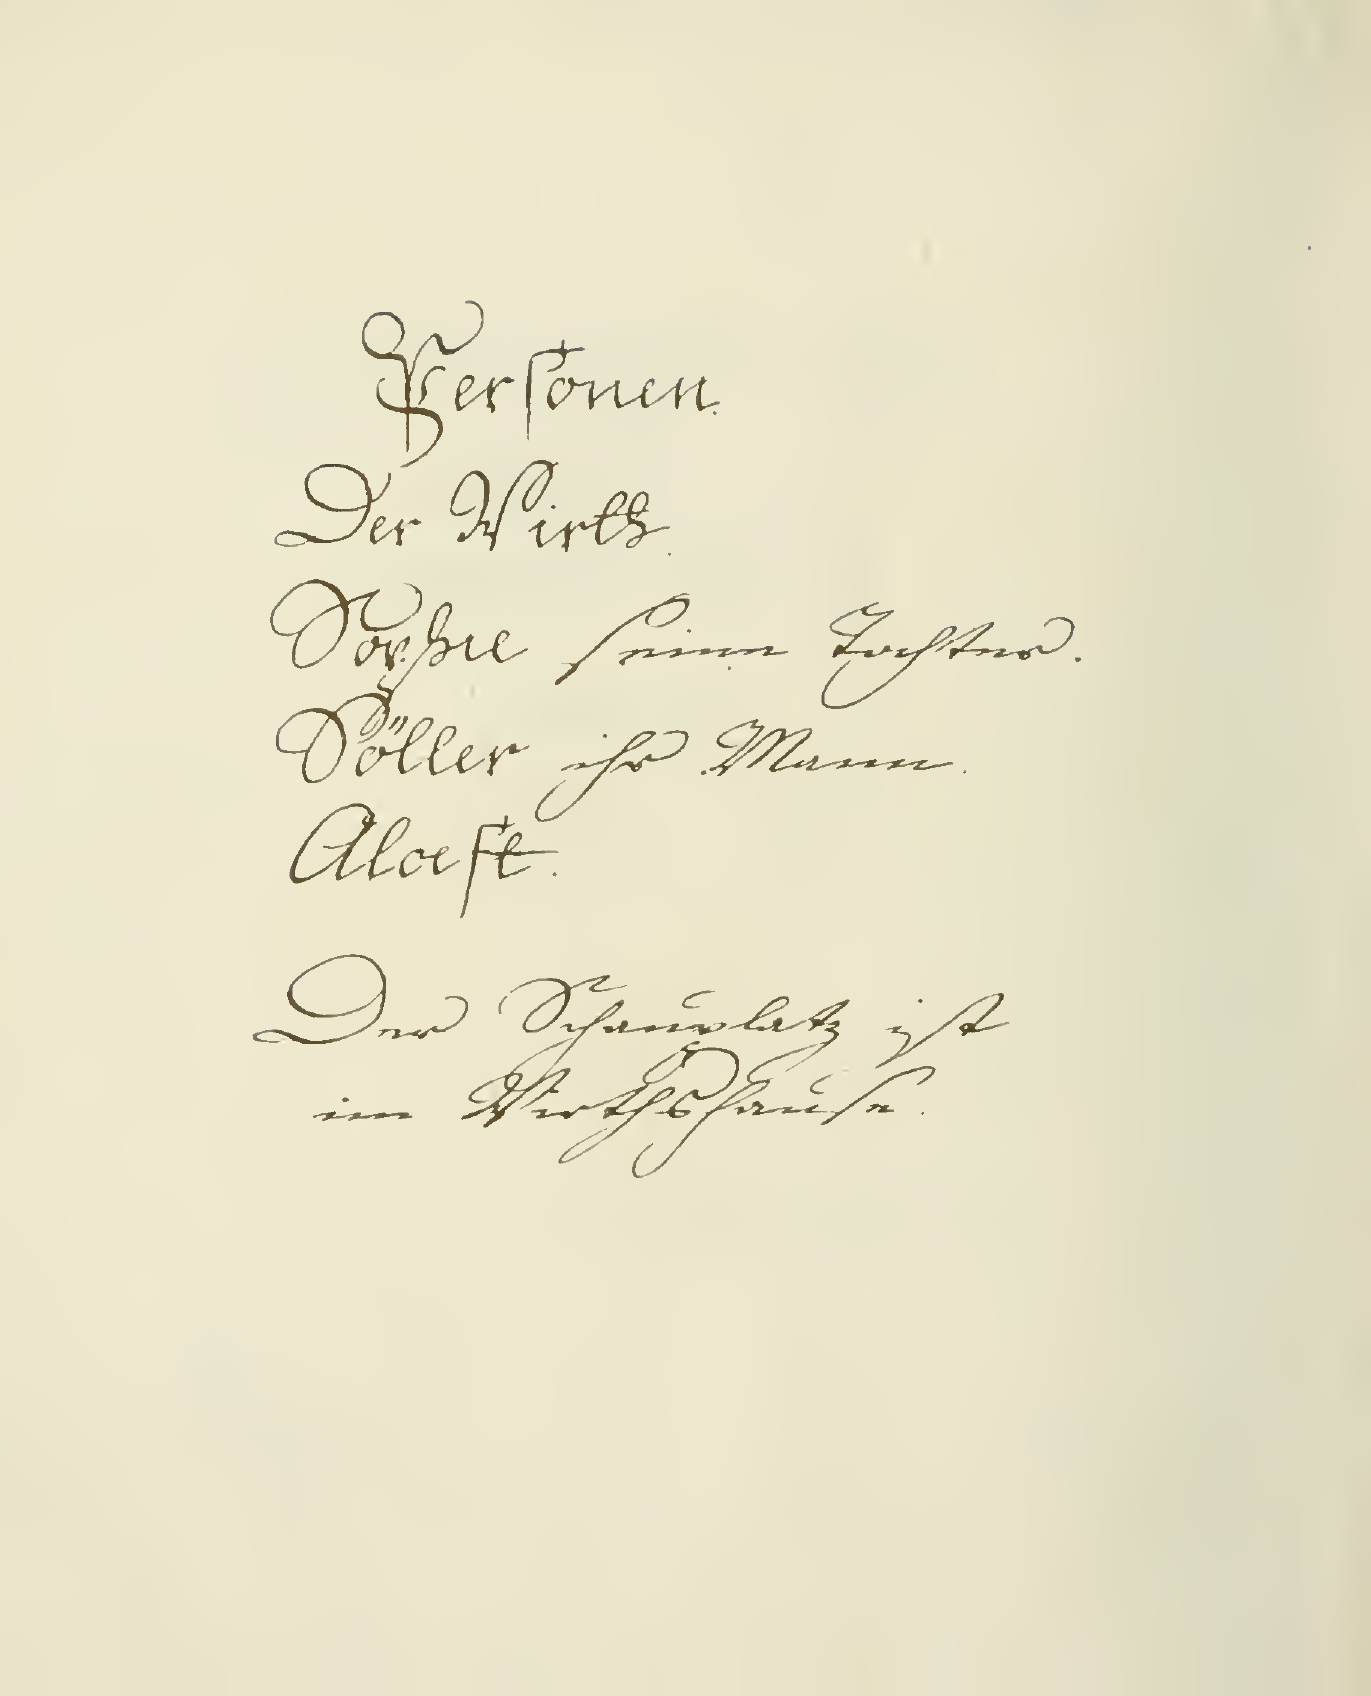 Personen.
Der Wirth.
Sophie seine Tochter.
Söller ihr Mann.
Alcest.
Der Schauplatz ist
im Wirthshause.